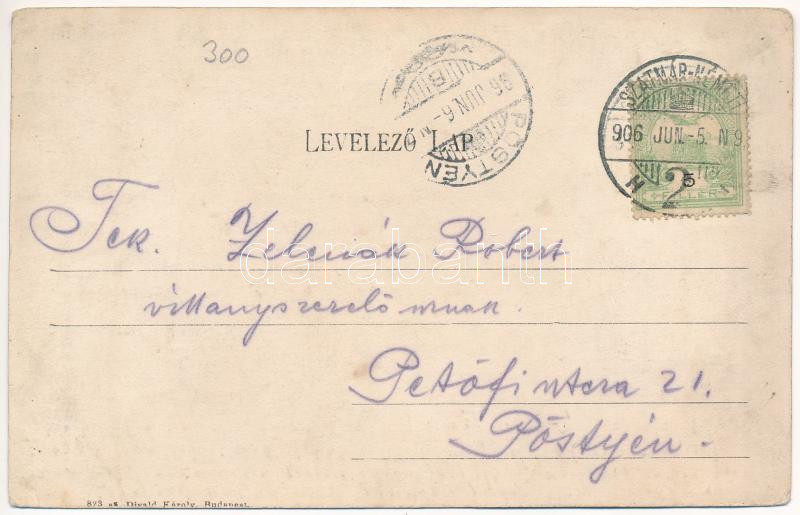 300
LEVELEZŐ LAP
PÖSTYÉN
906 JUN.-6
B
SZATMÁR-NÉMETI
906 JUN.-5. N 9
H
5
2
Tek. Zelenák Robert
villanyszerelő urnak.
Petőfi utcza 21.
Pöstyén.
darabanth
823 sz. Divald Károly, Budapest.